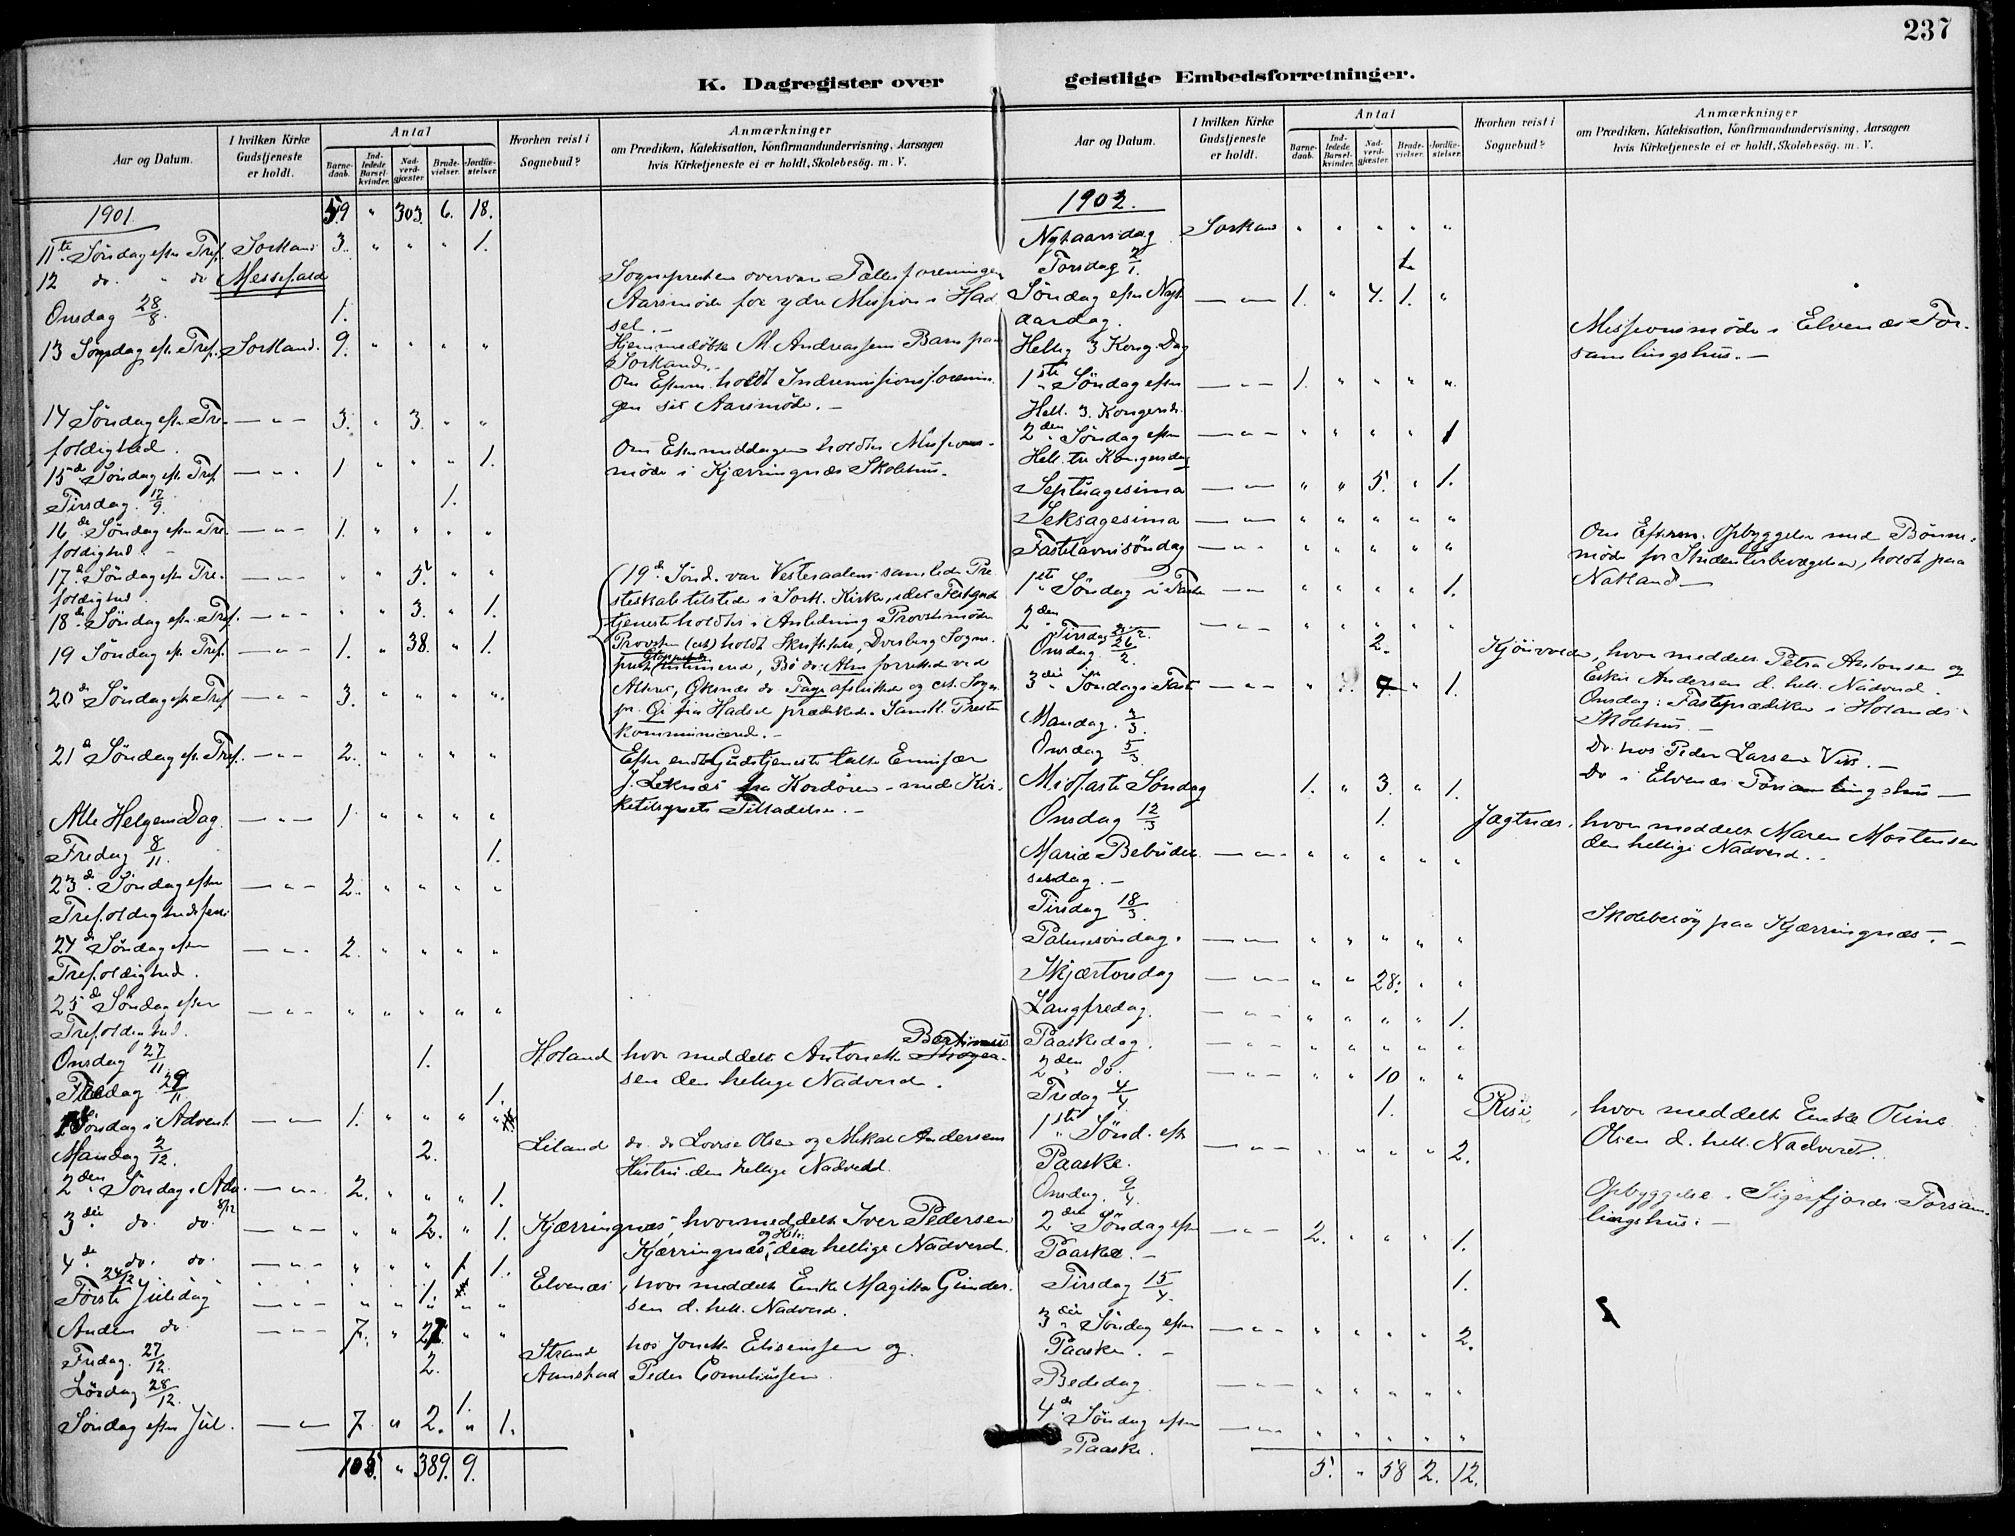 237
K. Dagregister over
geistlige Embedsforretninger.
Aar og Datum.
I hvilken Kirke
Gudstjeneste
er holdt.
Antal
Barne-
daab.
Ind-
ledede
Barsel-
kvinder.
Nad-
verd-
gjæster.
Brude-
vielser.
Jordfæ-
stelser.
Hvorhen reist i
Sognebud?
Anmærkninger
om Prædiken, Katekisation, Konfirmandundervisning, Aarsagen
hvis Kirketjeneste ei er holdt, Skolebesög. m. V.
1901 59 " 303. 6. 18.
11te Søndag efter Tref. Sortland 3. " " " 1.
12 do. " do Messefald
Sognepresten overvar Fællesforeningen
Onsdag 28/8. 1.
Aarsmøde for ydre Mission i Had
sel. —
13 Søndag eft. Tref. Sortland. 9. " " " "
Hjemmedøbte M Andreassens Barn paa
Sortland. -
Om Efterm. holdt Indremissionsforenin
gen sit Aarsmøde. —
14 Søndag eft. Tre- — " — 3. " 3. " "
foldighed.
15de Søndag eft. Tref. — " — 1 " " " 1.
Om Eftermiddagen holdtes Missions-
møde i Kjærringnæs Skolehus. -
Tirsdag. 17/9. 1.
16de Søndag efter Tre- — " — 1. " " " "
foldighed. —
17de Søndag efter Tre- — " — " " 5. " "
foldighed
18de Søndag eft. Tref. — " — " " 3. " 1.
19 Søndag eft. Tref. — " — 1. " 38. " 1.
19de Sønd. var Vesteraalens samlede Pre
steskab tilstede i Sortl. Kirke, idet Festgud
tjeneste holdtes i Anledning Provstimøde
Provsten holdt Skriftetale, Dverberg Sogne-
Altret, Øksnæs do Fage afsluttede og Sogne
pr. Qi fra Hadsel prædikede. Samtl. Prester
kommunicered. -
20de Søndag eft Tref — " — 3. " " " "
21de Søndag eft. Tref. — " — 2. " " " "
Efter endt Gudstjeneste talte Emissær
J. Leknæs fra Kordören - med Kir-
ketilsynets Tilladelse. —
Alle Helgens Dag. — " — 1 " " " "
Fredag 8/11. 1.
23de Søndag efter — " — 2. " " " "
24de Søndag efter — " — 2. " " " "
Trefoldighed.
25de Søndag efter — " — " " " " "
Trefoldighed.
Onsdag 27/11 1. Holand hvor meddelt Antonette Bertinus
sen den hellige Nadverd.
Fredag 29/11 1.
1 Søndag i Advent. — " — 1. " " " "
Mandag 2/12. 2. Leiland do. do Lovise Olsen og Mikal Andersens
Hustru den hellige Nadverd.
2den Søndag i Adv. — " — 2. " " " 1.
3die do. do. 8/12 — " — " " 2. " 1. Kjærringnæs, hvor meddelt Iver Pedersen
Kjærringnæs, og Hstr. den hellige Nadverd.
4de do. do. — " — " " " 1. 1.
24/12 1. Elvenæs, hvor meddelt Enke Magitta Gunder-
sen d. hell. Nadverd.
Første Juledag — " — " " " " "
Anden do — " — 7. " 27. " "
Fredag. 27/12. 2. Strand hos Jonetta Elisenssen og
Aanstad Peder Corneliussen.
Lørdag 28/12. 1.
Søndag efter Jul. — " — 7 " 2. " 1.
105. " 389. 9.
Aar og Datum.
I hvilken Kirke
Gudstjeneste
er holdt.
Antal
Barne-
daab.
Ind-
ledede
Barsel-
kvinder.
Nad-
verd-
gjæster.
Brude-
vielser.
Jordfæ-
stelser.
Hvorhen reist i
Sognebud?
Anmærkninger
om Prædiken, Katekisation, Konfirmandundervisning, Aarsagen
hvis Kirketjeneste ei er holdt, Skolebesög. m. V.
1902.
Nytaarsdag Sortland " " " " "
Torsdag 2/1. 1.
Søndag efter Nyt- — " — 1. " 4. 1. "
aarsdag.
Hellig 3 Kong. Dag
Missionsmøde i Elvenæs For-
samlingshus. —
1ste Søndag efter — " — 1. " " " "
Hell. 3. Kongersd.
2den Søndag efter — " — " " " " 1
Hell. tre Kongersdag
Septuagesima — " — " " 5. " 1.
Seksagesima — " — " " " " "
Fastelavnssöndag — " — " " " " "
Om Efterm. Opbyggelse med Bønne-
møde for Studenterbevægelsen, holdt paa
Natland —
1ste Søndag i Faste — " — " " " " 1.
2den — " — " " " " "
Tirsdag
Onsdag. 26/2. 2. Kjörvrden, hvor meddelt Petra Antonsen og
Eskil Andersen d. hell. Nadverd.
3die Søndag i Faste — " — " " 7 " 1.
Onsdag: Fasteprædiken i Holands
Skolehus —
Mandag. 3/3. Do. hos Peder Larsen Vik. —
Onsdag 5/3 Do i Elvenæs Forsamlingshus —
Midfaste Søndag 1. " 3. " 1.
Onsdag 12/3 1. Jagtnæs, hvor meddelt Maren Mortensen
den hellige Nadverd. -
Mariæ Bebudel- — " — " " " " "
sesdag. —
Tirsdag 18/3. Skolebesøg paa Kjærringnæs. —
Palmesöndag. — " — " " " " "
Skjærtorsdag — " — " " 28. " "
Langfredag. — " — " " " " 1.
Paaskedag. — " — " " " " "
2den do. — " — " " 10 " "
Fredag 4/4. 1. Risø, hvor meddelt Enke Oline
Olsen d. hell. Nadverd.
1ste Sønd. eft — " — " " " " 2.
Paaske.
Onsdag. 9/4. Opbyggelse i Sigerfjords Forsam-
lingshus: —
2den Søndag efter — " — 2. " " " 1.
Paaske. —
Tirsdag 15/4. 1.
3die Søndag efter — " — " " " " 2.
Paaske. -
Bededag. — " — " " " " "
4de Søndag efter — " — " " " " "
Paaske.
5. " 58 2. 12.